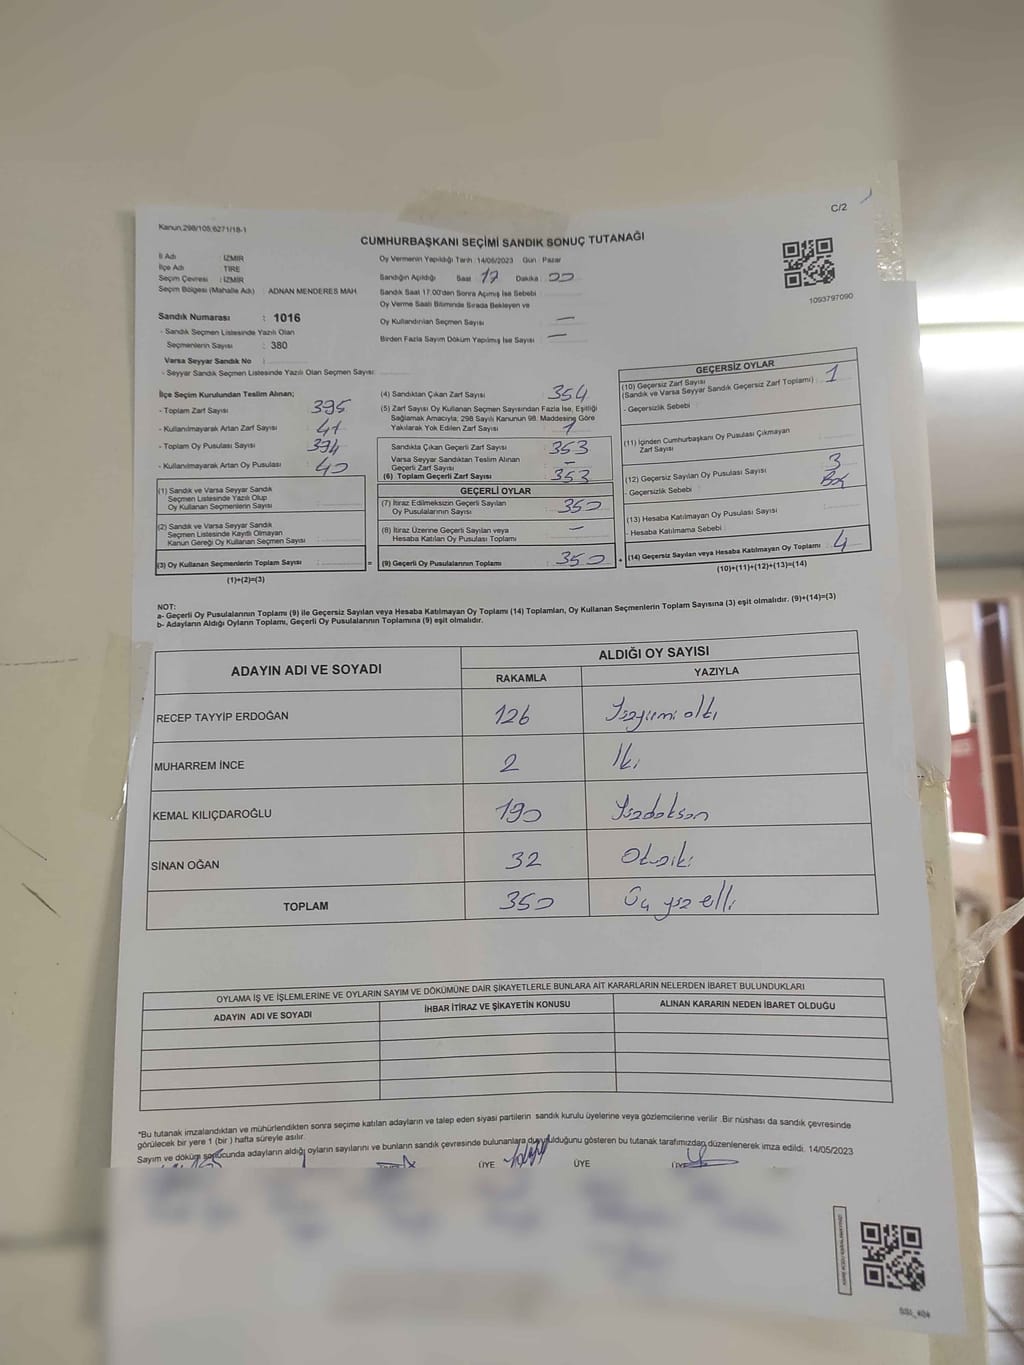 Kanun;298/105;6271/18-1
C/2
CUMHURBAŞKANI SEÇİMİ SANDIK SONUÇ TUTANAĞI
İl Adı : İZMİR
İlçe Adı : TİRE
Seçim Çevresi : İZMİR
Seçim Bölgesi (Mahalle Adı) : ADNAN MENDERES MAH.
Sandık Numarası : 1016
- Sandık Seçmen Listesinde Yazılı Olan
Seçmenlerin Sayısı : 380
Varsa Seyyar Sandık No :
- Seyyar Sandık Seçmen Listesinde Yazılı Olan Seçmen Sayısı:
Oy Vermenin Yapıldığı Tarih :14/05/2023 Gün : Pazar
Sandığın Açıldığı Saat 17 Dakika : 00
Sandık Saat 17:00'den Sonra Açılmış İse Sebebi
Oy Verme Saati Bitiminde Sırada Bekleyen ve
Oy Kullandırılan Seçmen Sayısı : —
Birden Fazla Sayım Döküm Yapılmış İse Sayısı : —
1093797090
İlçe Seçim Kurulundan Teslim Alınan;
- Toplam Zarf Sayısı : 395
- Kullanılmayarak Artan Zarf Sayısı : 41
- Toplam Oy Pusulası Sayısı : 394
- Kullanılmayarak Artan Oy Pusulası : 40
(1) Sandık ve Varsa Seyyar Sandık
Seçmen Listesinde Yazılı Olup
Oy Kullanan Seçmenlerin Sayısı :
(2) Sandık ve Varsa Seyyar Sandık
Seçmen Listesinde Kayıtlı Olmayan
Kanun Gereği Oy Kullanan Seçmen Sayısı :
(3) Oy Kullanan Seçmenlerin Toplam Sayısı :
(1)+(2)=(3)
=
(4) Sandıktan Çıkan Zarf Sayısı : 354
(5) Zarf Sayısı Oy Kullanan Seçmen Sayısından Fazla İse, Eşitliği
Sağlamak Amacıyla; 298 Sayılı Kanunun 98. Maddesine Göre
Yakılarak Yok Edilen Zarf Sayısı : 1
Sandıkta Çıkan Geçerli Zarf Sayısı : 353
Varsa Seyyar Sandıktan Teslim Alınan
Geçerli Zarf Sayısı : —
(6) Toplam Geçerli Zarf Sayısı : 353
GEÇERLİ OYLAR
(7) İtiraz Edilmeksizin Geçerli Sayılan
Oy Pusulalarının Sayısı : 350
(8) İtiraz Üzerine Geçerli Sayılan veya
Hesaba Katılan Oy Pusulası Toplamı : —
(9) Geçerli Oy Pusulalarının Toplamı : 350
+
GEÇERSİZ OYLAR
(10) Geçersiz Zarf Sayısı
(Sandık ve Varsa Seyyar Sandık Geçersiz Zarf Toplamı) : 1
- Geçersizlik Sebebi :
(11) İçinden Cumhurbaşkanı Oy Pusulası Çıkmayan
Zarf Sayısı :
(12) Geçersiz Sayılan Oy Pusulası Sayısı : 3
- Geçersizlik Sebebi :
(13) Hesaba Katılmayan Oy Pusulası Sayısı :
- Hesaba Katılmama Sebebi :
(14) Geçersiz Sayılan veya Hesaba Katılmayan Oy Toplamı : 4
(10)+(11)+(12)+(13)=(14)
NOT:
a- Geçerli Oy Pusulalarının Toplamı (9) ile Geçersiz Sayılan veya Hesaba Katılmayan Oy Toplamı (14) Toplamları, Oy Kullanan Seçmenlerin Toplam Sayısına (3) eşit olmalıdır. (9)+(14)=(3)
b- Adayların Aldığı Oyların Toplamı, Geçerli Oy Pusulalarının Toplamına (9) eşit olmalıdır.
ADAYIN ADI VE SOYADI
ALDIĞI OY SAYISI
RAKAMLA YAZIYLA
RECEP TAYYİP ERDOĞAN 126 Yüzyirmi altı
MUHARREM İNCE 2 İki
KEMAL KILIÇDAROĞLU 190 Yüzdoksan
SİNAN OĞAN 32 Otuziki
TOPLAM 350 Üç yüz elli
OYLAMA İŞ VE İŞLEMLERİNE VE OYLARIN SAYIM VE DÖKÜMÜNE DAİR ŞİKAYETLERLE BUNLARA AİT KARARLARIN NELERDEN İBARET BULUNDUKLARI
ADAYIN ADI VE SOYADI İHBAR İTİRAZ VE ŞİKAYETİN KONUSU ALINAN KARARIN NEDEN İBARET OLDUĞU
*Bu tutanak imzalandıktan ve mühürlendikten sonra seçime katılan adayların ve talep eden siyasi partilerin sandık kurulu üyelerine veya gözlemcilerine verilir .Bir nüshası da sandık çevresinde
görülecek bir yere 1 (bir ) hafta süreyle asılır.
Sayım ve döküm sonucunda adayların aldığı oyların sayılarını ve bunların sandık çevresinde bulunanlara duyulduğunu gösteren bu tutanak tarafımızdan düzenlenerek imza edildi. 14/05/2023
ÜYE ÜYE ÜYE